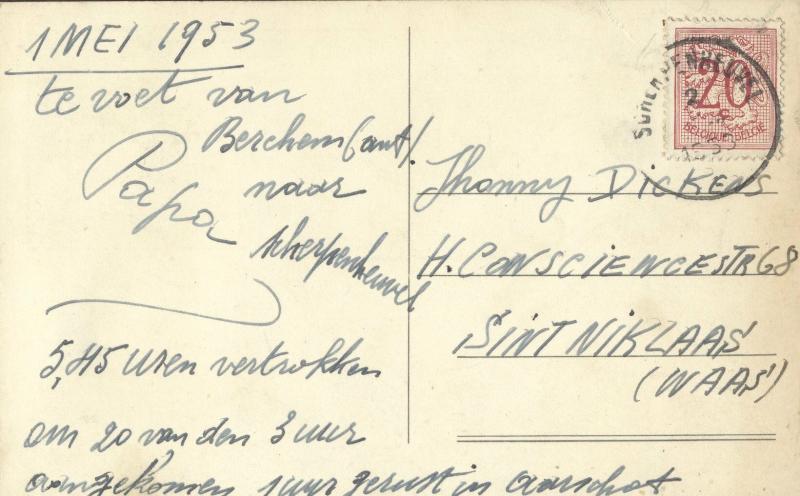 1 MEI 1953
te voet van
Berchem (ant).
naar
Scherpenheuvel
Papa
5,45 uren vertrokken
om 20 van den 3 uur
aangekomen 1 uur gerust in Aarschot
20
BELGIQUE-BELGIE
Jhonny DICKENS
H. CONSCIENCESTR 68
SINT NIKLAAS
(WAAS)